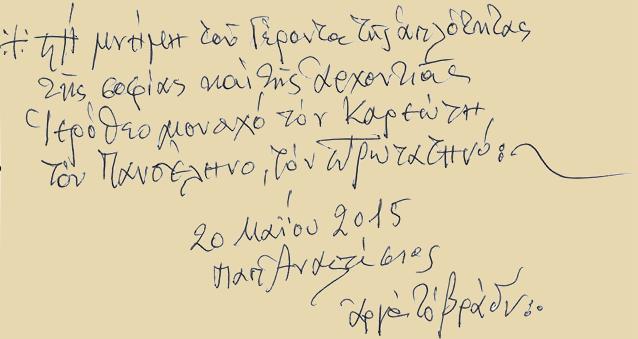 ⁜ τῇ μνήμῃ τοῦ Γέροντα τῆς ἁπλότητας
τῆς σοφίας καὶ τῆς ἀρχοντιᾶς
Ἱερόθεο μοναχό τόν Καρεώτη,
τόν Πανσέληνο, τόν Πρωτατηνό:~
20 Μαΐου 2015
παπ Ἀναστάσιος
ἀργὰ τὸ βράδυ:.